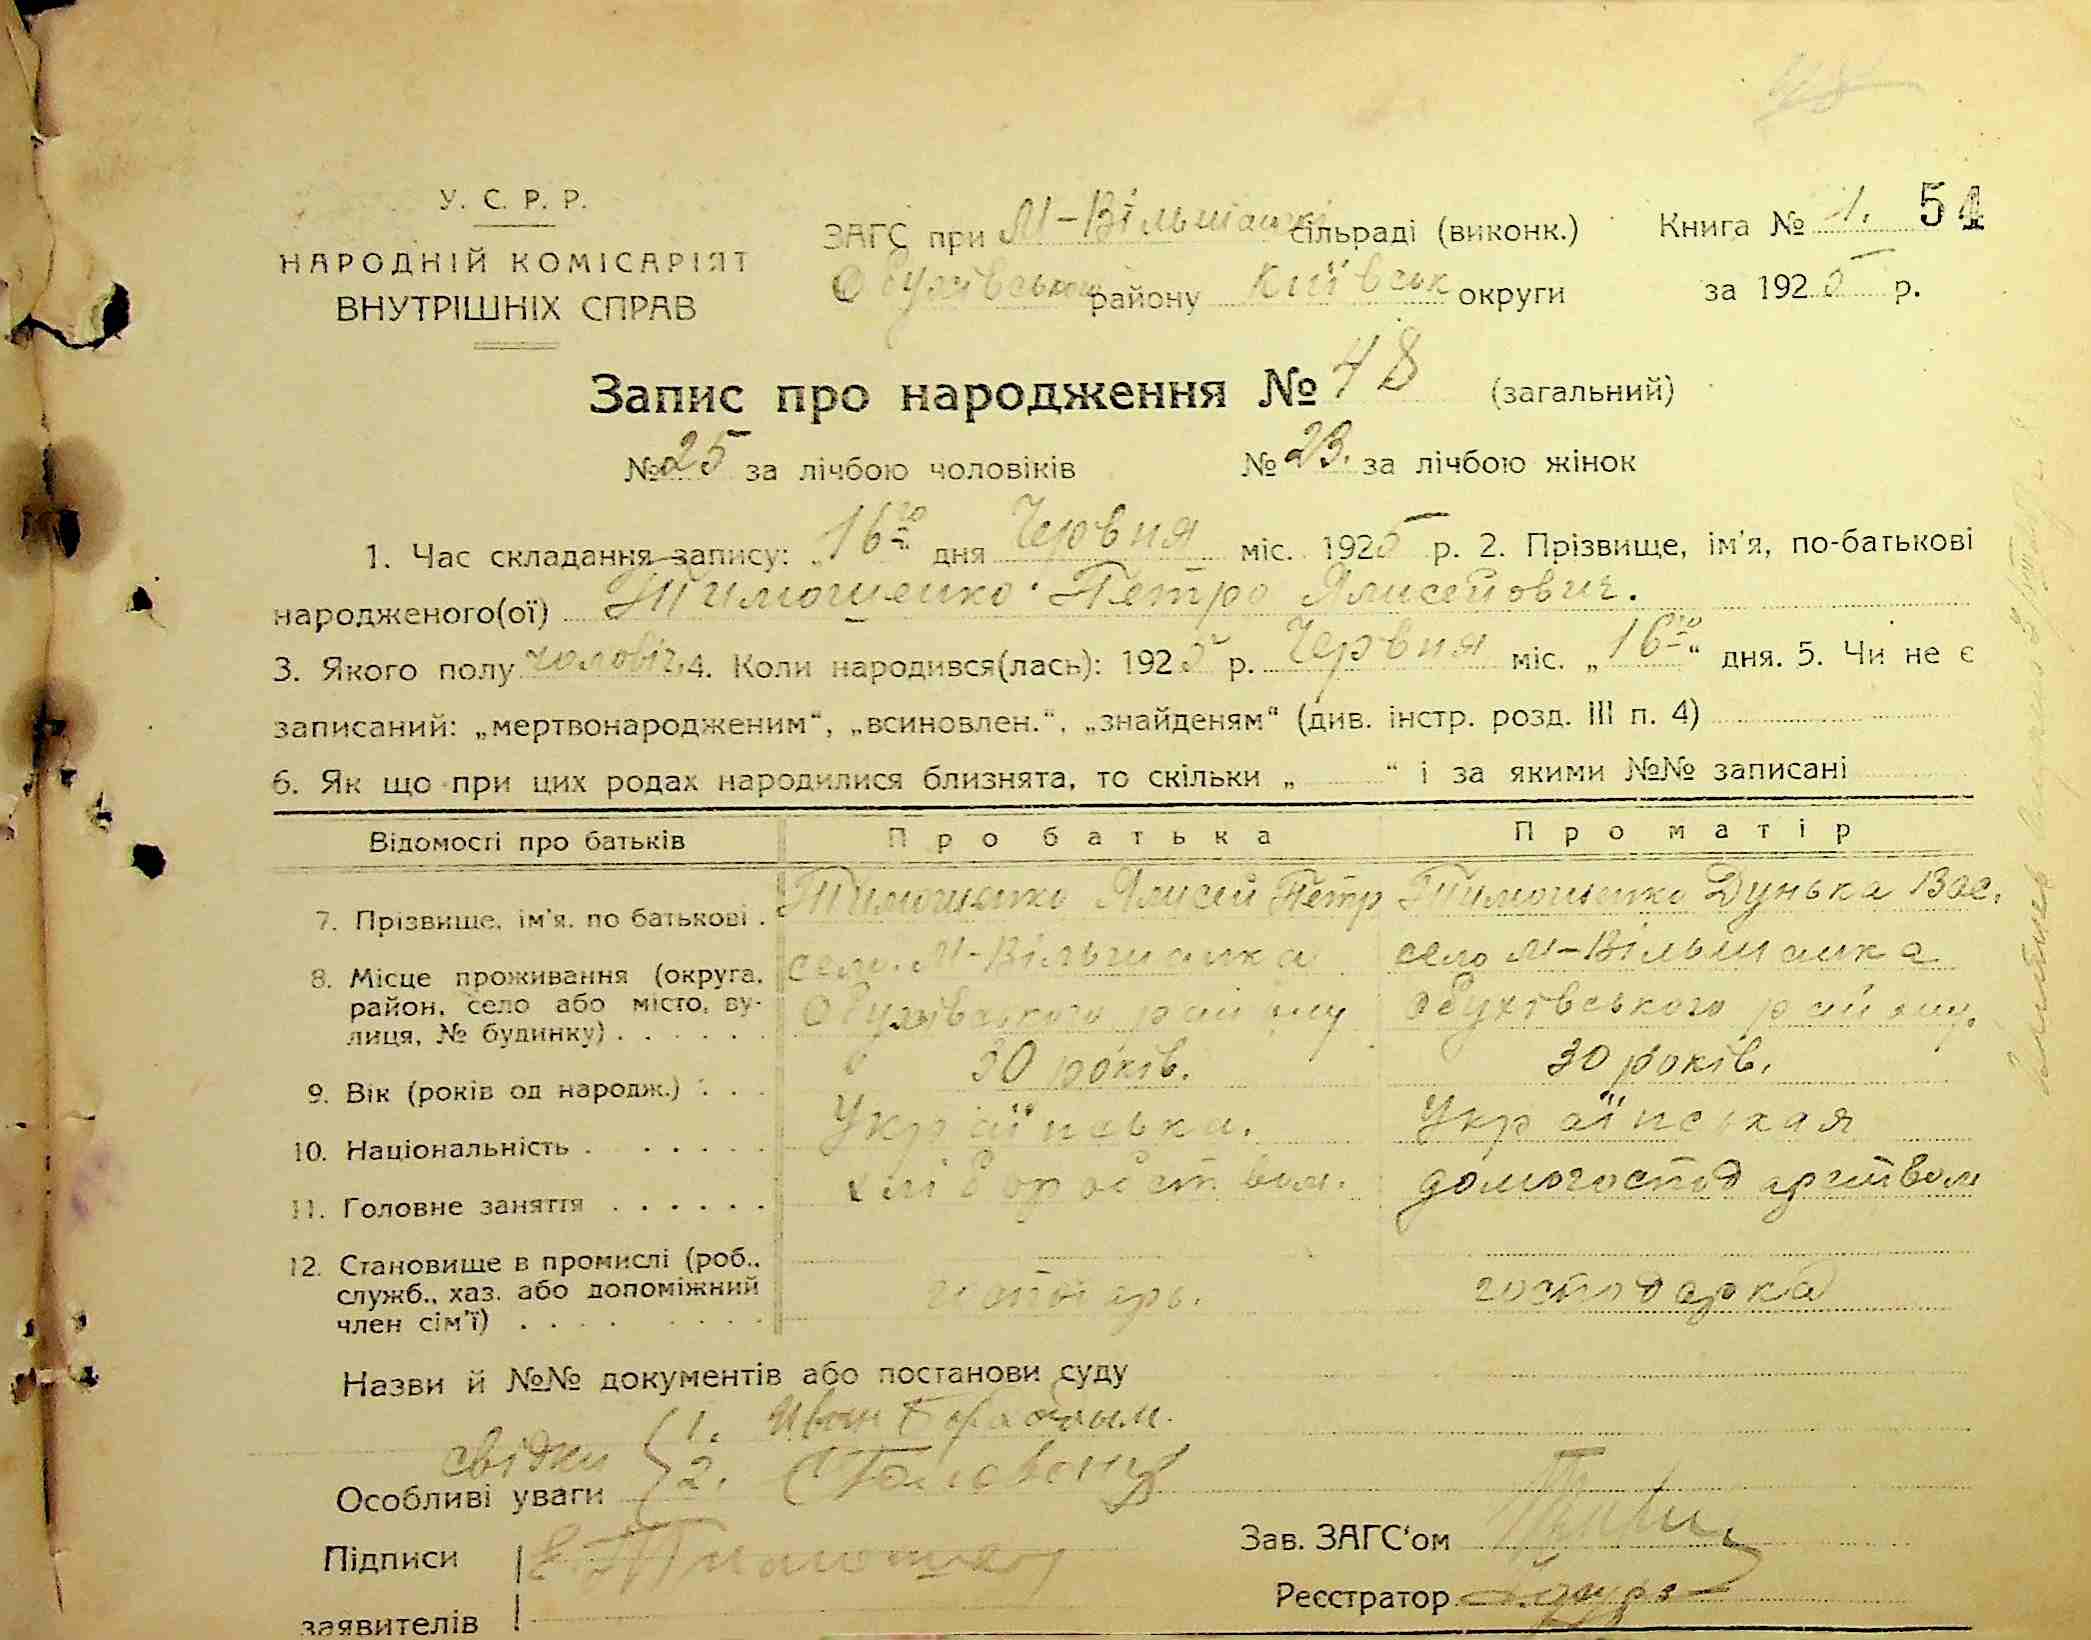 У. С. Р. Р.
НАРОДНІЙ КОМІСАРІЯТ
ВНУТРІШНІХ СПРАВ
ЗАГС при М-Вільшанскі сільраді (виконк.)
Обухівською району Київськ округи
Книга № 1. 51
за 1925 р.
Запис про народження № 48 (загальний)
№ 25 за лічбою чоловіків № 23. за лічбою жінок
1. Час складання запису: „16го“ дня Червня міс. 1925 р. 2. Прізвище, ім'я, по-батькові
народженого(ої) Тимошенко Петро Ялисейович.
3. Якого полу чоловіч. 4. Коли народився(лась): 1925 р. Червня міс. „16го“ дня. 5. Чи не є
записаний: „мертвонародженим“, „всиновлен.“, „знайденям“ (див. інстр. розд. III п. 4)
6. Як що при цих родах народилися близнята, то скільки „ “ і за якими №№ записані
Відомості про батьків Про батька Про матір
7. Прізвище, ім'я, по батькові . Тимошенко Ялисей Петр Тимошенко Дунька Вас.
8. Місце проживання (округа, район, село або місто, ву-
лиця, № будинку) . . . . . .
село М-Вільшанка
Обухівського району
село М-Вільшанка
Обухівського району.
9. Вік (років од народж.) : . . 30 років. 30 років.
10. Національність . . . . . . . Українська. Українськая
11. Головне заняття . . . . . . хліборобством. домогосподарством
12. Становище в промислі (роб.,
служб., хаз. або допоміжний
член сім'ї) . . . .
господарка
Назви й №№ документів або постанови суду
свідки 1. Иван
2.
Особливі уваги
Підписи
заявителів
Е. Тимошенко
Зав. ЗАГС‘ом
Реєстратор